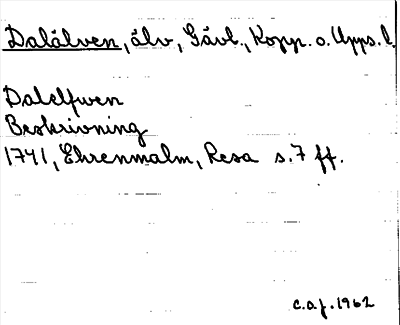 Dalälven, älv, Gävl., Kopp. o. Upps. l.
Dalelfwen
Beskrivning
1741, Ehrenmalm, Resa s. 7 ff.
c.a.f. 1962